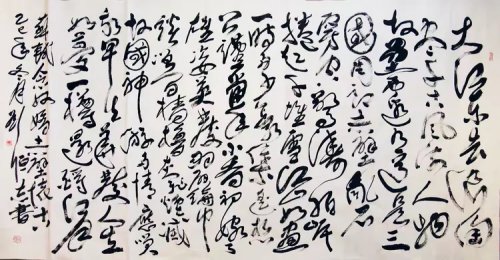 大江东去浪淘
尽千古风流人物
故垒西边人道是三
國周郎赤壁乱石
空惊涛拍岸
捲起千堆雪江山如画
一时多少豪杰遥想
公瑾当年小乔初嫁了
雄姿英发羽扇纶巾
谈笑间樯橹灰飞烟灭
故國神游多情应笑
我早生华发人生
如梦一樽还酹江月
苏轼念奴娇赤壁怀古
年冬月书